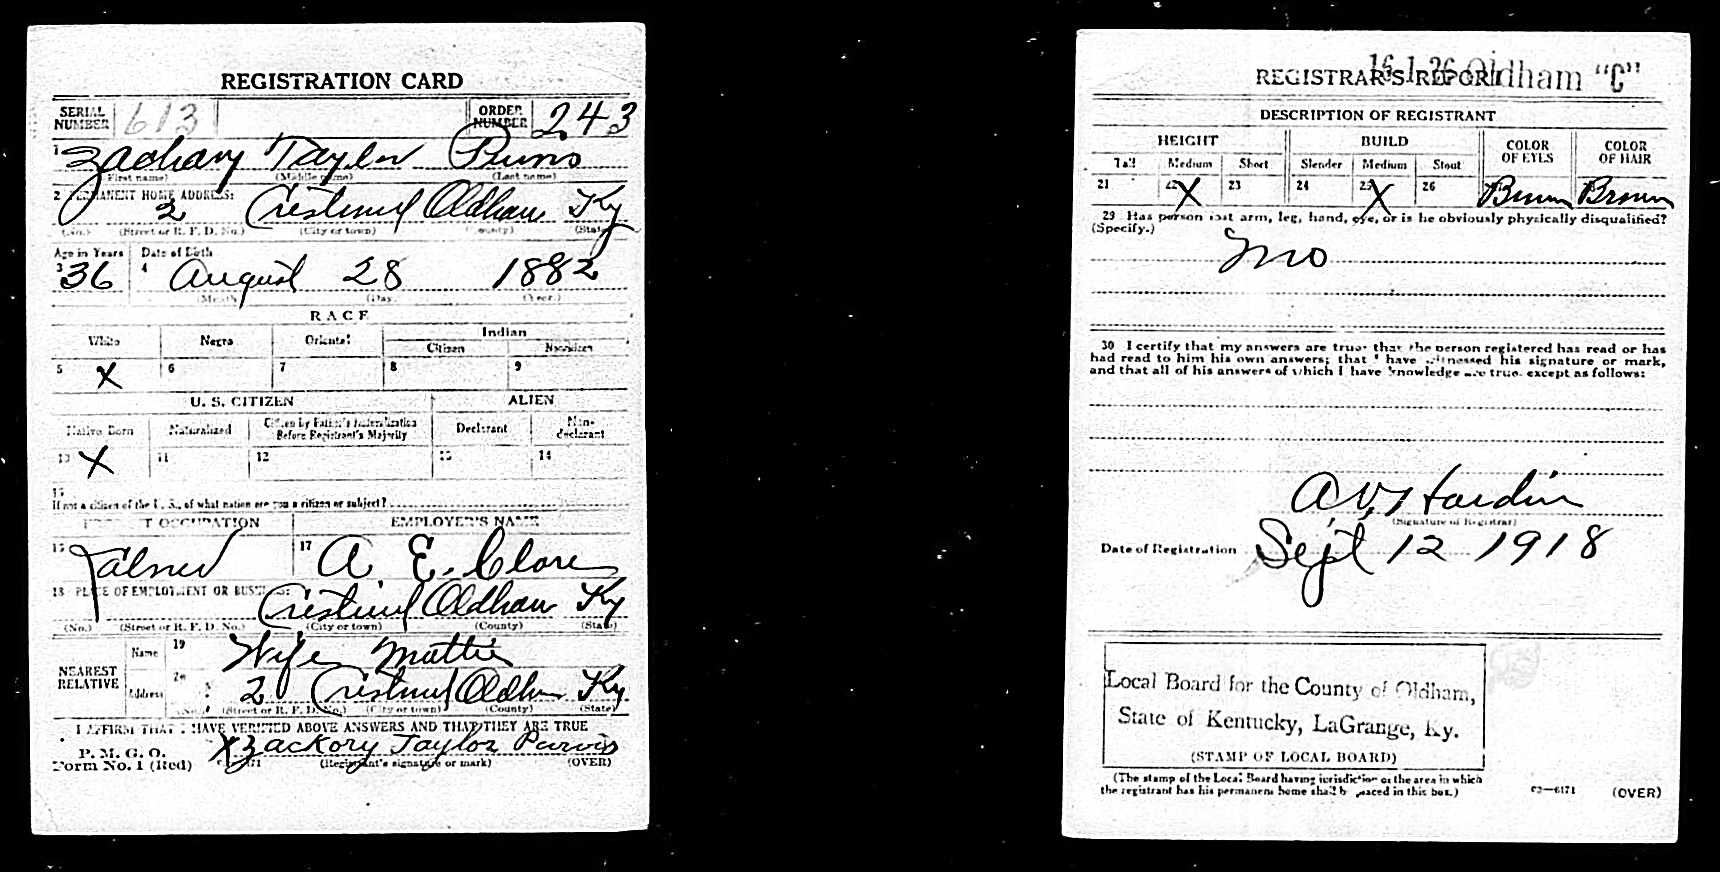 REGISTRATION CARD
SERIAL NUMBER 613 ORDER NUMBER 243
1 Zachary Taylor Purvis
(First name) (Middle name) (Last name)
2 PERMANENT HOME ADDRESS:
2 Crestwood Oldham Ky
(No.) (Street or R. F. D. No.) (City or town) (County) (State)
Age in Years Date of Birth
3 36 4 August 28 1882
(Month) (Day) (Year.)
RACE
White Negro Oriental Indian
Citizen Noncitizen
5 X 6 7 8 9
U. S. CITIZEN ALIEN
Native Born Naturalized Citizen by Father's Naturalization Before Registrant's Majority Declarant Non-declarant
10 X 11 12 13 14
15
If not a citizen of the U. S., of what nation are you a citizen or subject?
PRESENT OCCUPATION EMPLOYER'S NAME
16 17 A E. Clore
18 PLACE OF EMPLOYMENT OR BUSINESS:
Crestwood Oldham Ky
(No.) (Street or R. F. D. No.) (City or town) (County) (State)
NEAREST RELATIVE Name 19 Wife Mattie
Address 20 2 Crestwood Oldham Ky
(No.) (Street or R. F. D. No.) (City or town) (County) (State)
I AFFIRM THAT I HAVE VERIFIED ABOVE ANSWERS AND THAT THEY ARE TRUE
P. M. G. O.
Form No. 1 (Red) X Zackory Taylor Purvis
(Registrant's signature or mark) (OVER)
REGISTRAR'S REPORT 16-1-26 Oldham "C"
DESCRIPTION OF REGISTRANT
HEIGHT BUILD COLOR OF EYES COLOR OF HAIR
Tall Medium Short Slender Medium Stout
21 22 X 23 24 25 X 26 Brown Brown
29 Has person lost arm, leg, hand, eye, or is he obviously physically disqualified?
(Specify.)
no
30 I certify that my answers are true; that the person registered has read or has
had read to him his own answers; that I have witnessed his signature or mark,
and that all of his answers of which I have knowledge are true, except as follows:
A. V. Hardin
(Signature of Registrar)
Date of Registration Sept 12 1918
Local Board for the County of Oldham,
State of Kentucky, LaGrange, Ky.
(STAMP OF LOCAL BOARD)
(The stamp of the Local Board having jurisdiction of the area in which
the registrant has his permanent home shall be placed in this box.)
03—6171 (OVER)